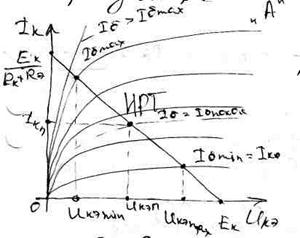 Iк
Iб > Iбmax
"А"
Iбmax
Eк
Rк+Rэ
ИРТ
Iкп
Iб = Iбпокоя
Iбmin = Iко
0
Uкэmin
Uкэп
Uкэmax
Eк
Uкэ